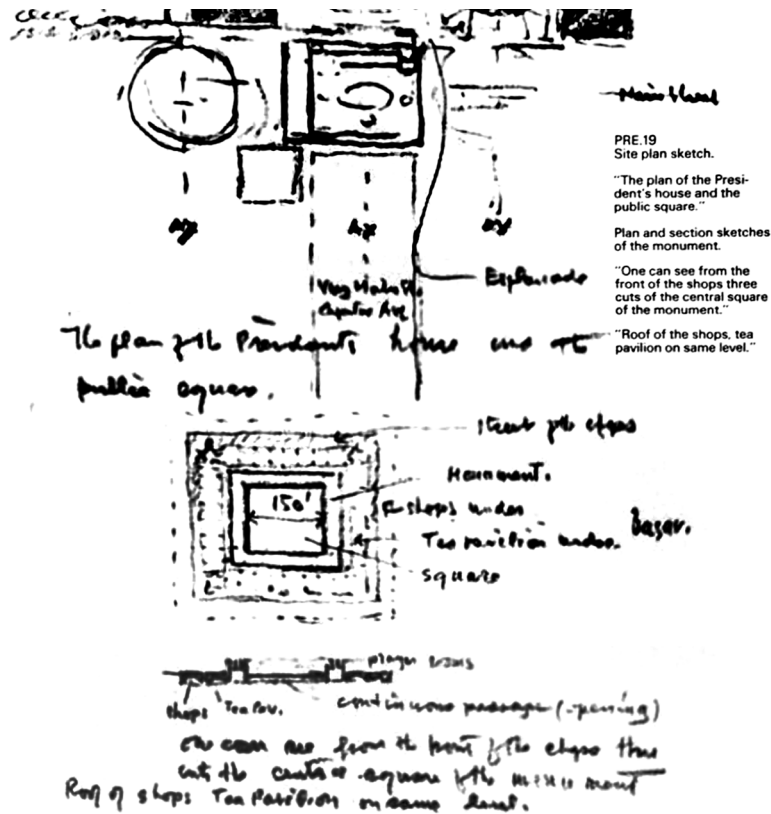 Main Street
PRE.19
Site plan sketch.
"The plan of the Presi-
dent's house and the
public square."
Plan and section sketches
of the monument.
"One can see from the
front of the shops three
cuts of the central square
of the monument."
"Roof of the shops, tea
pavilion on same level."
Ax
Ax
Ax
Esplanade
The plan of the Presidents house and the
public square.
Street of the shops
Monument.
150'
shops under
Bazar.
Tea pavilion under.
square
prayer rooms
shops Tea Pav. continuous passage (opening)
one can see from the front of the shops three
cuts of the central square of the monument
Roof of shops Tea Pavilion on same level.